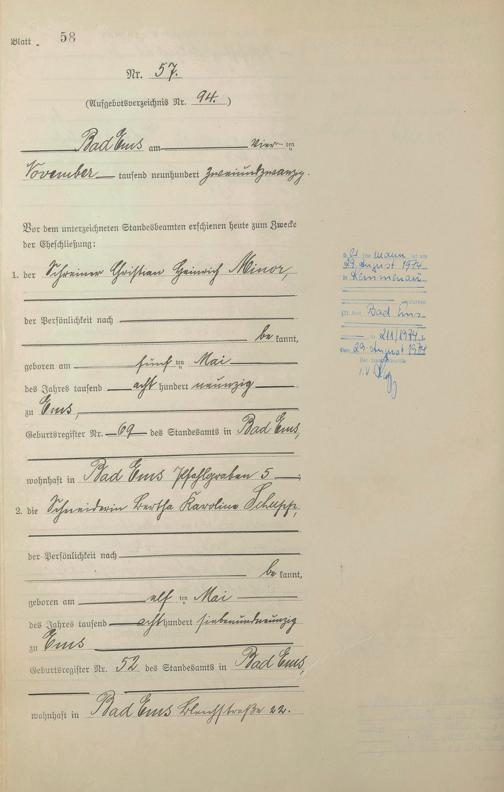 Blatt 58
Nr. 57.
(Aufgebotsverzeichnis Nr. 94.)
Bad Ems am Vierten
November tausend neunhundert zweiundzwanzig.
Vor dem unterzeichneten Standesbeamten erschienen heute zum Zwecke
der Eheschließung:
1. der Schreiner Christian Heinrich Minor,
der Persönlichkeit nach
be kannt,
geboren am fünften Mai
des Jahres tausend acht hundert neunzig
zu Ems,
Geburtsregister Nr. 69 des Standesamts in Bad Ems,
wohnhaft in Bad Ems Pfahlgraben 5
2. die Schneiderin Bertha Karoline Schupp,
der Persönlichkeit nach
be kannt,
geboren am elften Mai
des Jahres tausend acht hundert siebenundneunzig
zu Ems
Geburtsregister Nr. 52 des Standesamts in Bad Ems,
wohnhaft in Bad Ems Bleichstraße 22.
mann
29. August 1974
in Kemmenau
Bad Ems
211/1974
29. August 1974
I.V.